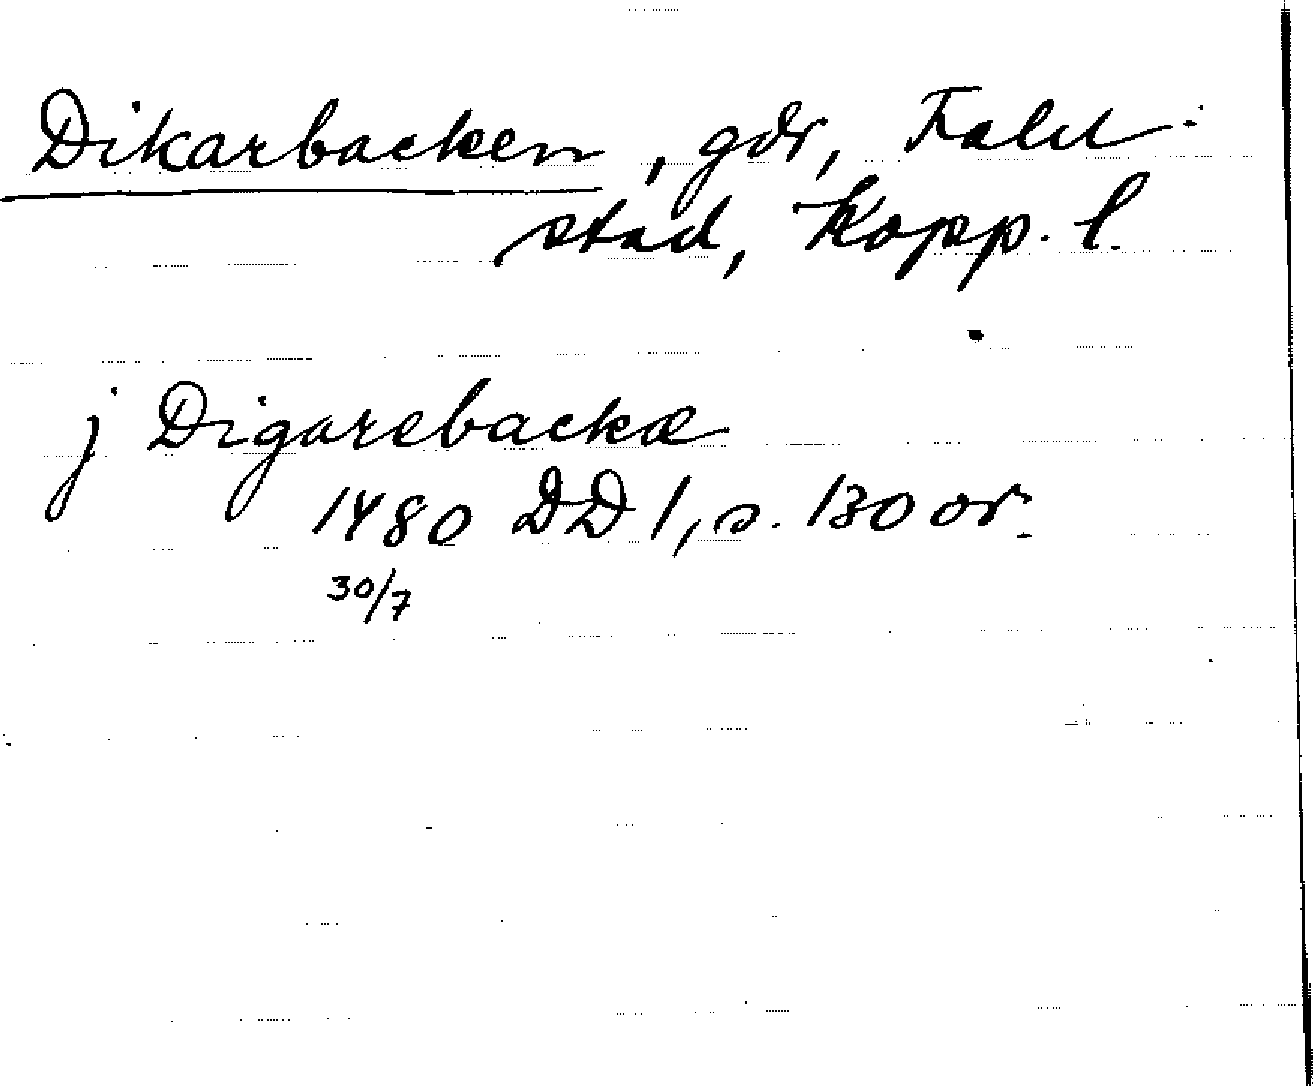 Dikarbacken, gdr, Falu
stad, Kopp. l.
j Digarebackæ
1480 DD 1, s. 130 or.
30/7